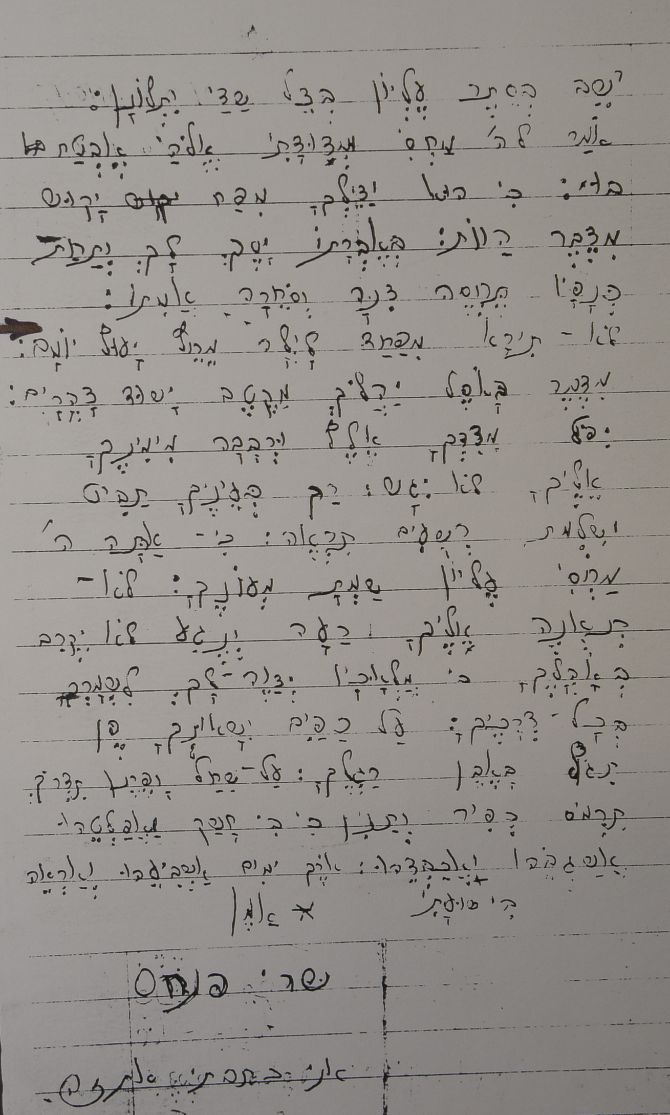 ישֵׁב בְּסֵתֶר עֶלְיוֹן בְּצֵל שַׁדַי יִתְלוֹנָן:
אֹמַר לה' מַחְסִי מְצוּדָתִי אֱלֹהַי אֶבְטַח
בו: כִּי הוא יַצִילְךָ מִפַּח יָקוּש
מִדֶבֶר הַוּוֹת: בְּאֶבְרָתוֹ יָסֶךְ לָךְ וְתַחַת
כְּנָפָיו תֶּחְסֶה צִנָה וְסֹחֵרָה אֲמִתוֹ:
לֹא - תִירָא מִפַּחַד לָיְלָה מֵחֵץ יָעוּף יוֹמָם:
מִדֶבֶר בָּאֹפֶל יַהֲלֹךְ מִקֶטֶב יָשׁוּד צָהֳרָיִם:
יִפֹּל מִצִדְךָ אֶלֶף וּרְבָבָה מִימִינֶךָ
אֵלֶיךָ לֹא יִגָש: רַק בְּעֵינֶיךָ תַבִּיט
וְשִלֻמַת רְשָעִים תִרְאֶה: כִּי - אַתָּה ה'
מַחְסִי עֶלְיוֹן שַׂמְתָּ מְעוֹנֶךָ: לֹא -
תְאֻנֶה אֵלֶיךָ רָעָה וְנֶגַע לֹא יִקְרַב
בְּאָהֳלֶךָ כִּי מַלְאָכָיו יְצַוֶה - לָךְ לִשְמָרְךָ
בְּכָל - דְּרָכֶיךָ: עַל כַּפַּיִם יִשָׂאוּנְךָ פֶּן
תִגֹף בָּאֶבֶן רַגְלֶךָ: עַל - שַׁחַל וָפֶתֶן תִדְרֹךְ
תִרְמֹס כְּפִיר וְתַנִין כִּי בִי חָשַק וַאֲפַלְטֵהוּ
אֲשַגְבֵהוּ וַאֲכַבְּדֵהוּ: אֹרֶךְ יָמִים אַשְבִּיעֵהוּ וְאַרְאֵהוּ
בִּישׁוּעָתִי * אָמֵן
אני כתבתי את זה.